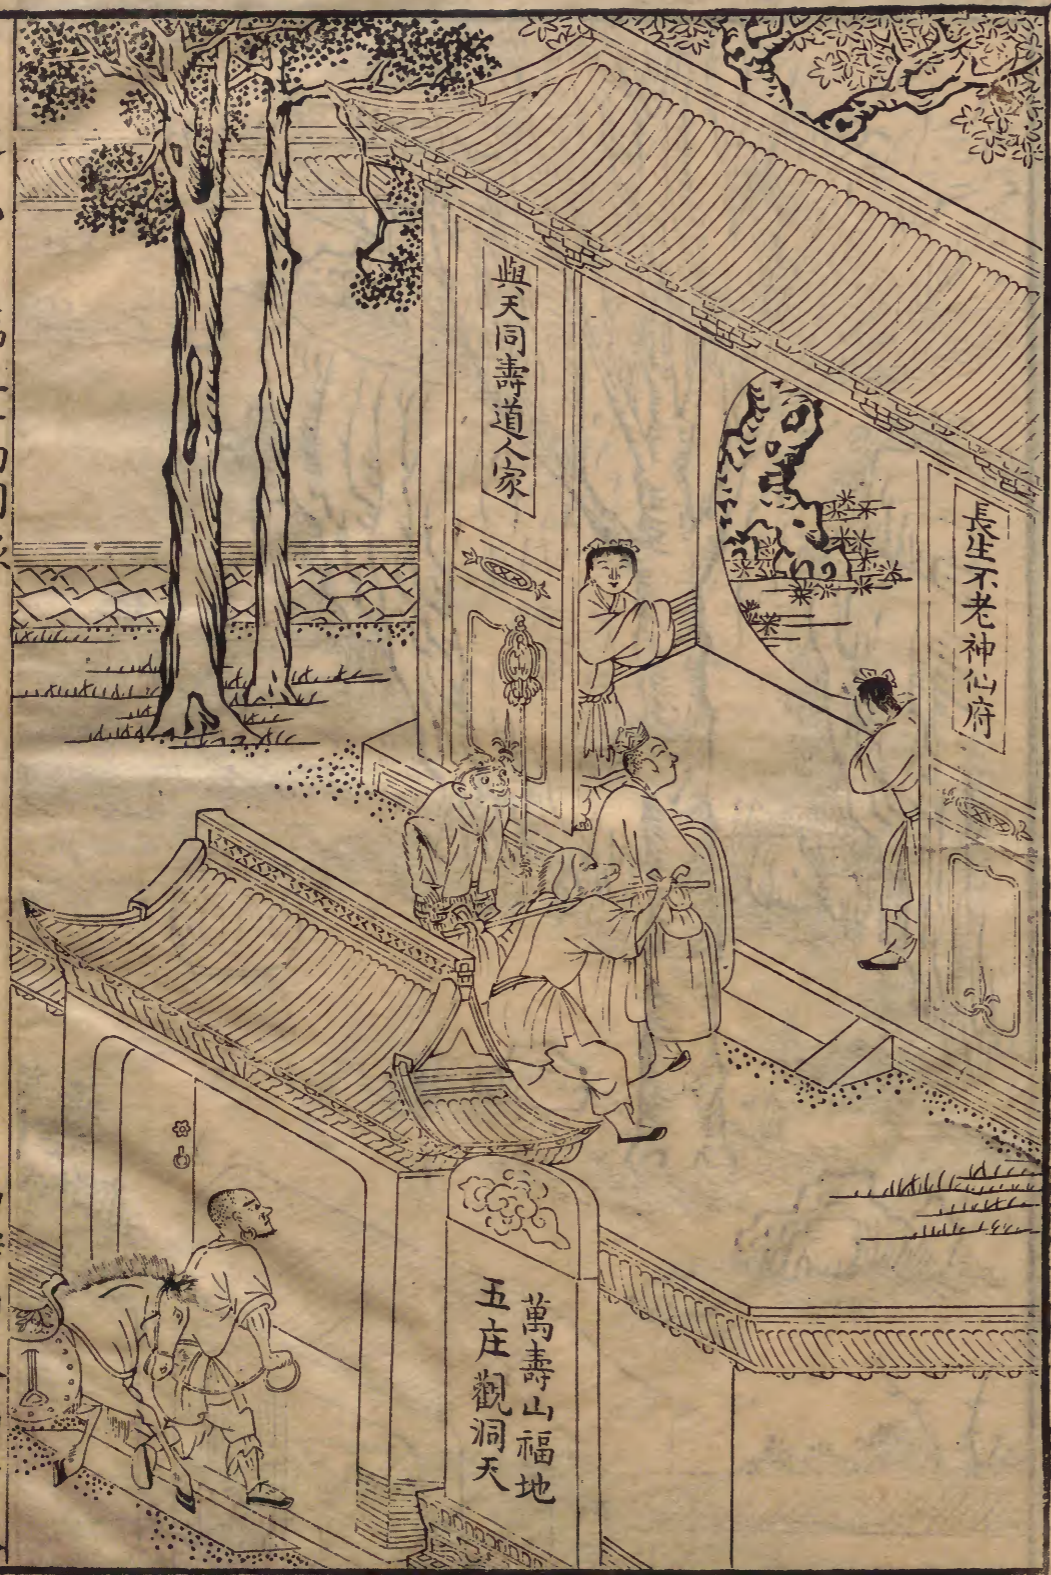 長生不老神仙府
與天同壽道人家
萬壽山福地
五庄觀洞天